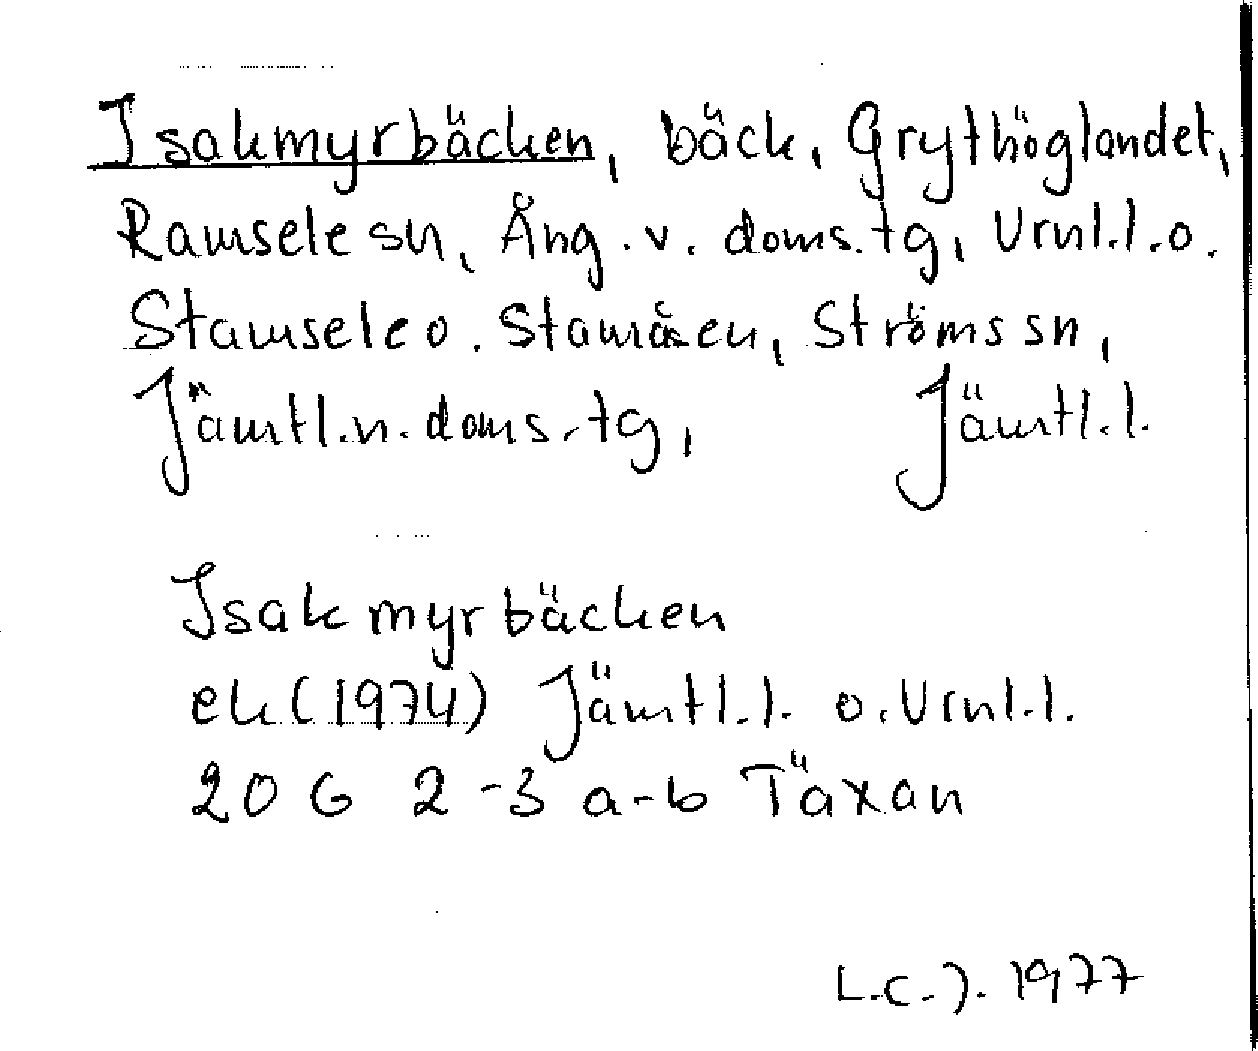 Isakmyrbäcken, bäck, Grythöglandet,
Ramsele sn, Ång. v. doms. tg, Vrnl.l. o.
Stamsele o. Stamåsen, Ströms sn,
Jämtl. n. doms. tg, Jämtl. l.
Isakmyrbäcken
ek (1974) Jämtl. l. o. Vrnl. l.
20 G 2-3 a-b Täxan
L.C.J. 1977